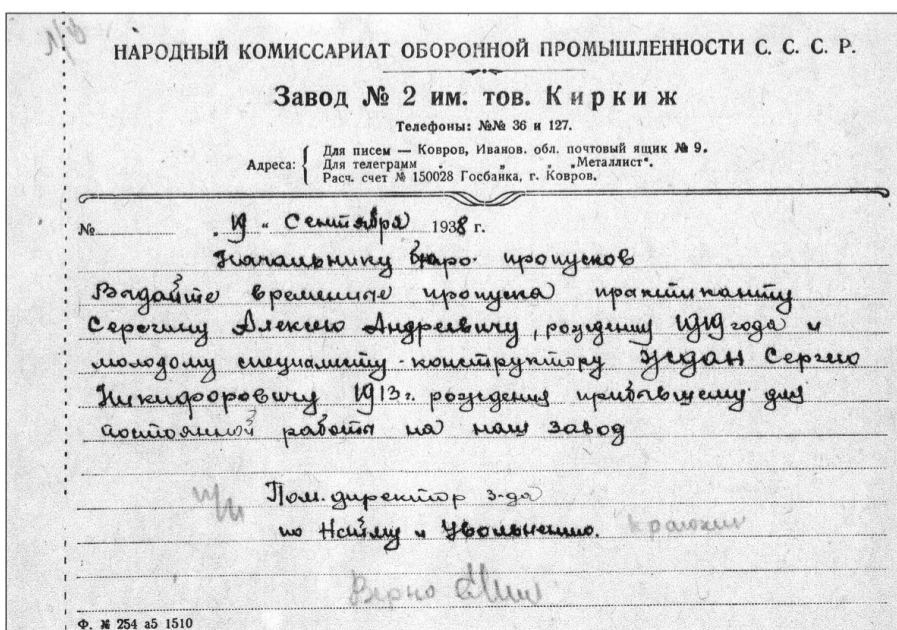 НАРОДНЫЙ КОМИССАРИАТ ОБОРОННОЙ ПРОМЫШЛЕННОСТИ С. С. С. Р.
Завод № 2 им. тов. Киркиж
Телефоны: №№ 36 и 127.
Адреса: Для писем — Ковров, Иванов. обл. почтовый ящик № 9.
Для телеграмм „ „ „ „Металлист“.
Расч. счет № 150028 Госбанка, г. Ковров.
№ „19“ Сентября 1938 г.
Начальнику бюро пропусков
Выдайте временные пропуска практиканту
Серегину Алексею Андреевичу, рождения 1919 года и
молодому специалисту-конструктору Ждан Сергею
Никифоровичу 1913 г. рождения прибывшему для
постоянной работы на наш завод
Пом. директор з-да
по Найму и Увольнению.
Верно
Ф. № 254 а5 1510